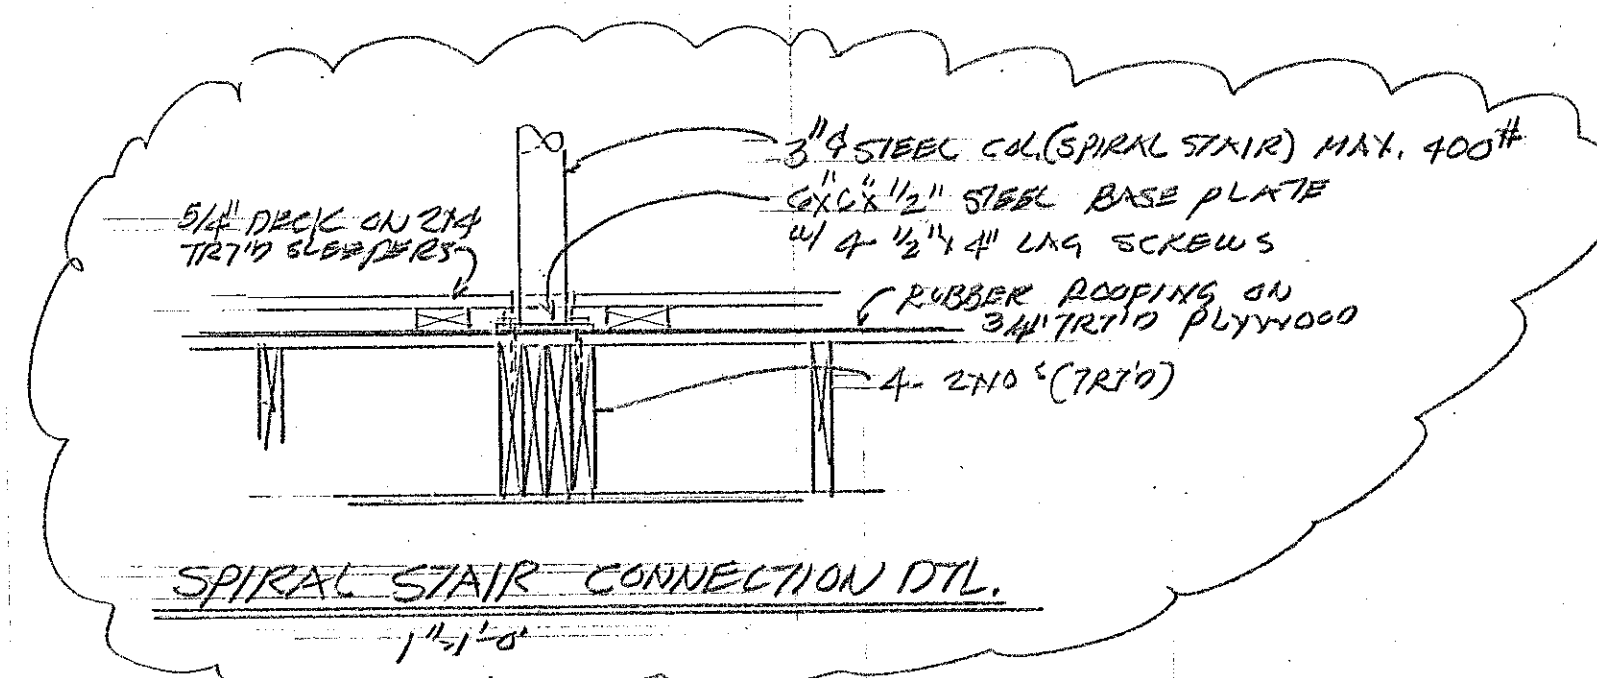 3"⌀ STEEL COL. (SPIRAL STAIR) MAX. 400#
6"x6"x1/2" STEEL BASE PLATE
w/ 4- 1/2"x4" LAG SCREWS
5/4" DECK ON 2x4
TRT'D SLEEPERS
RUBBER ROOFING ON
3/4" TRT'D PLYWOOD
4- 2x10's (TRT'D)
SPIRAL STAIR CONNECTION DTL.
1"=1'-0"